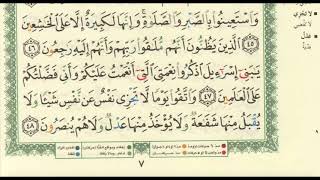 وَٱسْتَعِينُوا۟ بِٱلصَّبْرِ وَٱلصَّلَوٰةِ ۚ وَإِنَّهَا لَكَبِيرَةٌ إِلَّا عَلَى ٱلْخَـٰشِعِينَ
٤٥ ٱلَّذِينَ يَظُنُّونَ أَنَّهُم مُّلَـٰقُوا۟ رَبِّهِمْ وَأَنَّهُمْ إِلَيْهِ رَٰجِعُونَ ٤٦
يَـٰبَنِىٓ إِسْرَٰٓءِيلَ ٱذْكُرُوا۟ نِعْمَتِىَ ٱلَّتِىٓ أَنْعَمْتُ عَلَيْكُمْ وَأَنِّى فَضَّلْتُكُمْ
عَلَى ٱلْعَـٰلَمِينَ ٤٧ وَٱتَّقُوا۟ يَوْمًا لَّا تَجْزِى نَفْسٌ عَن نَّفْسٍ شَيْـًٔا وَلَا
يُقْبَلُ مِنْهَا شَفَـٰعَةٌ وَلَا يُؤْخَذُ مِنْهَا عَدْلٌ وَلَا هُمْ يُنصَرُونَ ٤٨
٧
لا تجزي
لا تقضي
عدل